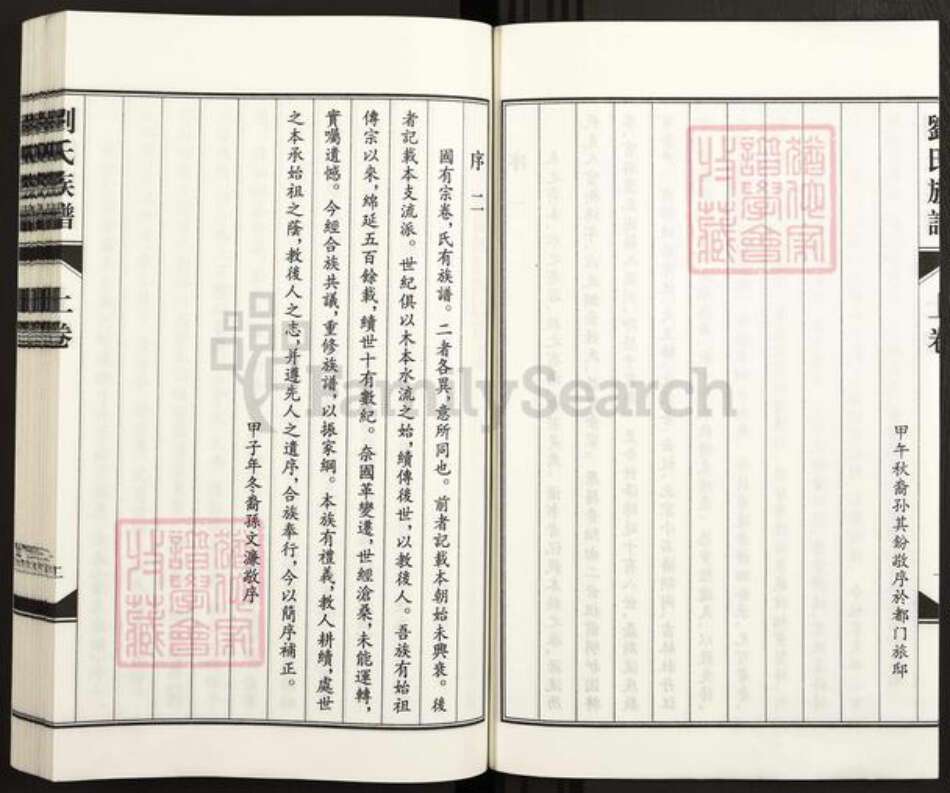 劉氏族譜
上卷
甲午秋裔孙其紛敬序於都门旅邸
序二
國有宗卷，氏有族譜。二者各異，意所同也。前者記載本朝始未興衰。後
者記載本支流派。世紀俱以木本水流之始，續傳後世，以教後人。吾族有始祖
傳宗以來，綿延五百餘載，續世十有數紀。奈國革變遷，世經滄桑，未能運轉，
實囑遺憾。今經合族共議，重修族譜，以振家綱。本族有禮義，教人耕績，處世
之本承始祖之蔭，教後人之志，并遵先人之遺序，合族奉行，今以簡序補正。
甲子年冬裔孫文濂敬序
劉氏族譜
上卷
FamilySearch